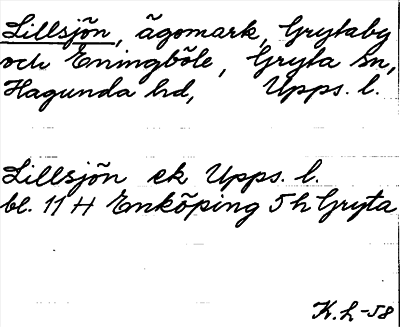 Lillsjön, ägomark, Grytaby
och Eningböle, Gryta sn,
Hagunda hd, Upps. l.
Lillsjön ek Upps. l.
bl. 11 H Enköping 5 h Gryta
K.L-58